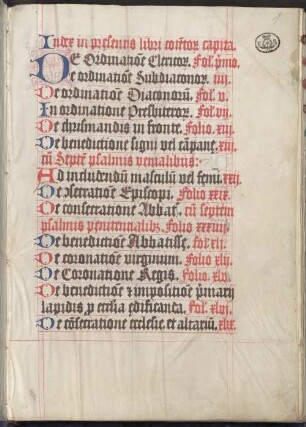 Index in presentis libri cõtẽtor capita.
DE Ordinatiõe Clericor. Fol. pmo.
De ordinatiõe Subdiaconor. iiij.
De ordinatiõe Diaconorũ. Fol. v.
In ordinatione Presbiteror. Fol. vij.
De chrismandis in fronte. Folio. xiij.
De benedictione signi vel cãpane. xiij.
cũ Septẽ psalmis venialibus:
Ad includendũ masculũ vel femĩ. xxij.
De ꝯsecratiõe Episcopi. Folio xxix.
De consecratione Abbat. cũ septem
psalmis penitentialibꝫ. Folio xxxiiij.
De benedictiõe Abbatisse. fol. xlj.
De coronatiõe virginum. Folio xliij.
De Coronatione Regis. Folio. xlv.
De benedictiõe et impositiõe pmarij
lapidis p ecclia edificanda. Fol. xlvj.
De cõsecratione ecclesie et altariũ. xlix.